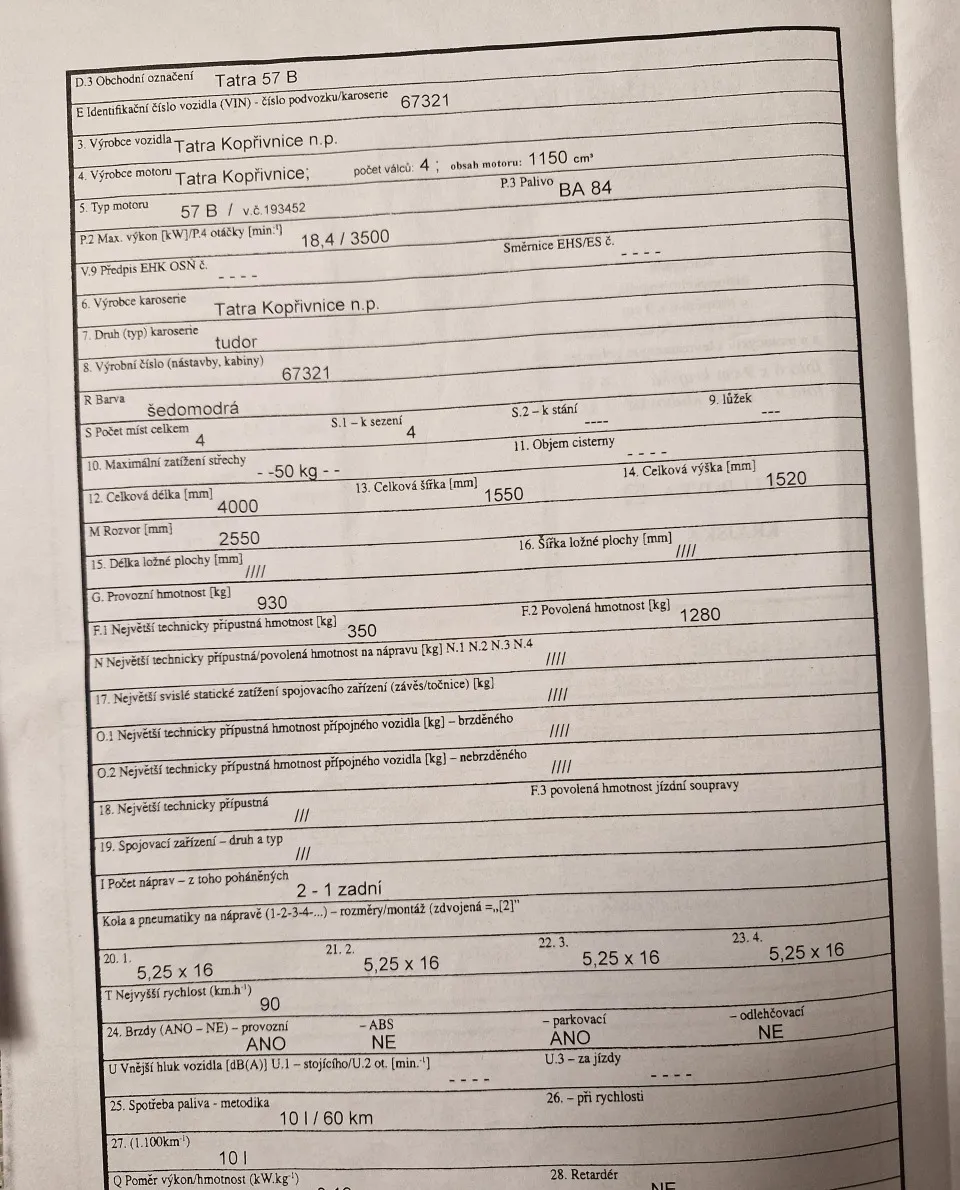 D.3 Obchodní označení Tatra 57 B
E Identifikační číslo vozidla (VIN) - číslo podvozku/karoserie 67321
3. Výrobce vozidla Tatra Kopřivnice n.p.
4. Výrobce motoru Tatra Kopřivnice; počet válců: 4 ; obsah motoru: 1150 cm³
5. Typ motoru 57 B / v.č.193452 P.3 Palivo BA 84
P.2 Max. výkon [kW]/P.4 otáčky [min.⁻¹] 18,4 / 3500
V.9 Předpis EHK OSN č. - - - - Směrnice EHS/ES č. - - - -
6. Výrobce karoserie Tatra Kopřivnice n.p.
7. Druh (typ) karoserie tudor
8. Výrobní číslo (nástavby, kabiny) 67321
R Barva šedomodrá
S Počet míst celkem 4 S.1 – k sezení 4 S.2 – k stání ---- 9. lůžek ---
10. Maximální zatížení střechy - -50 kg - - 11. Objem cisterny - - - -
12. Celková délka [mm] 4000 13. Celková šířka [mm] 1550 14. Celková výška [mm] 1520
M Rozvor [mm] 2550
15. Délka ložné plochy [mm] //// 16. Šířka ložné plochy [mm] ////
G. Provozní hmotnost [kg] 930
F.1 Největší technicky přípustná hmotnost [kg] 350 F.2 Povolená hmotnost [kg] 1280
N Největší technicky přípustná/povolená hmotnost na nápravu [kg] N.1 N.2 N.3 N.4 ////
17. Největší svislé statické zatížení spojovacího zařízení (závěs/točnice) [kg] ////
O.1 Největší technicky přípustná hmotnost přípojného vozidla [kg] – brzděného ////
O.2 Největší technicky přípustná hmotnost přípojného vozidla [kg] – nebrzděného ////
18. Největší technicky přípustná /// F.3 povolená hmotnost jízdní soupravy
19. Spojovací zařízení – druh a typ ///
I Počet náprav – z toho poháněných 2 - 1 zadní
Kola a pneumatiky na nápravě (1-2-3-4-...) – rozměry/montáž (zdvojená =„[2]"
20. 1. 5,25 x 16 21. 2. 5,25 x 16 22. 3. 5,25 x 16 23. 4. 5,25 x 16
T Nejvyšší rychlost (km.h⁻¹) 90
24. Brzdy (ANO – NE) – provozní ANO – ABS NE – parkovací ANO – odlehčovací NE
U Vnější hluk vozidla [dB(A)] U.1 – stojícího/U.2 ot. [min.⁻¹] - - - - U.3 – za jízdy - - - -
25. Spotřeba paliva - metodika 10 l / 60 km 26. – při rychlosti
27. (1.100km⁻¹) 10 l
Q Poměr výkon/hmotnost (kW.kg⁻¹) 28. Retardér NE